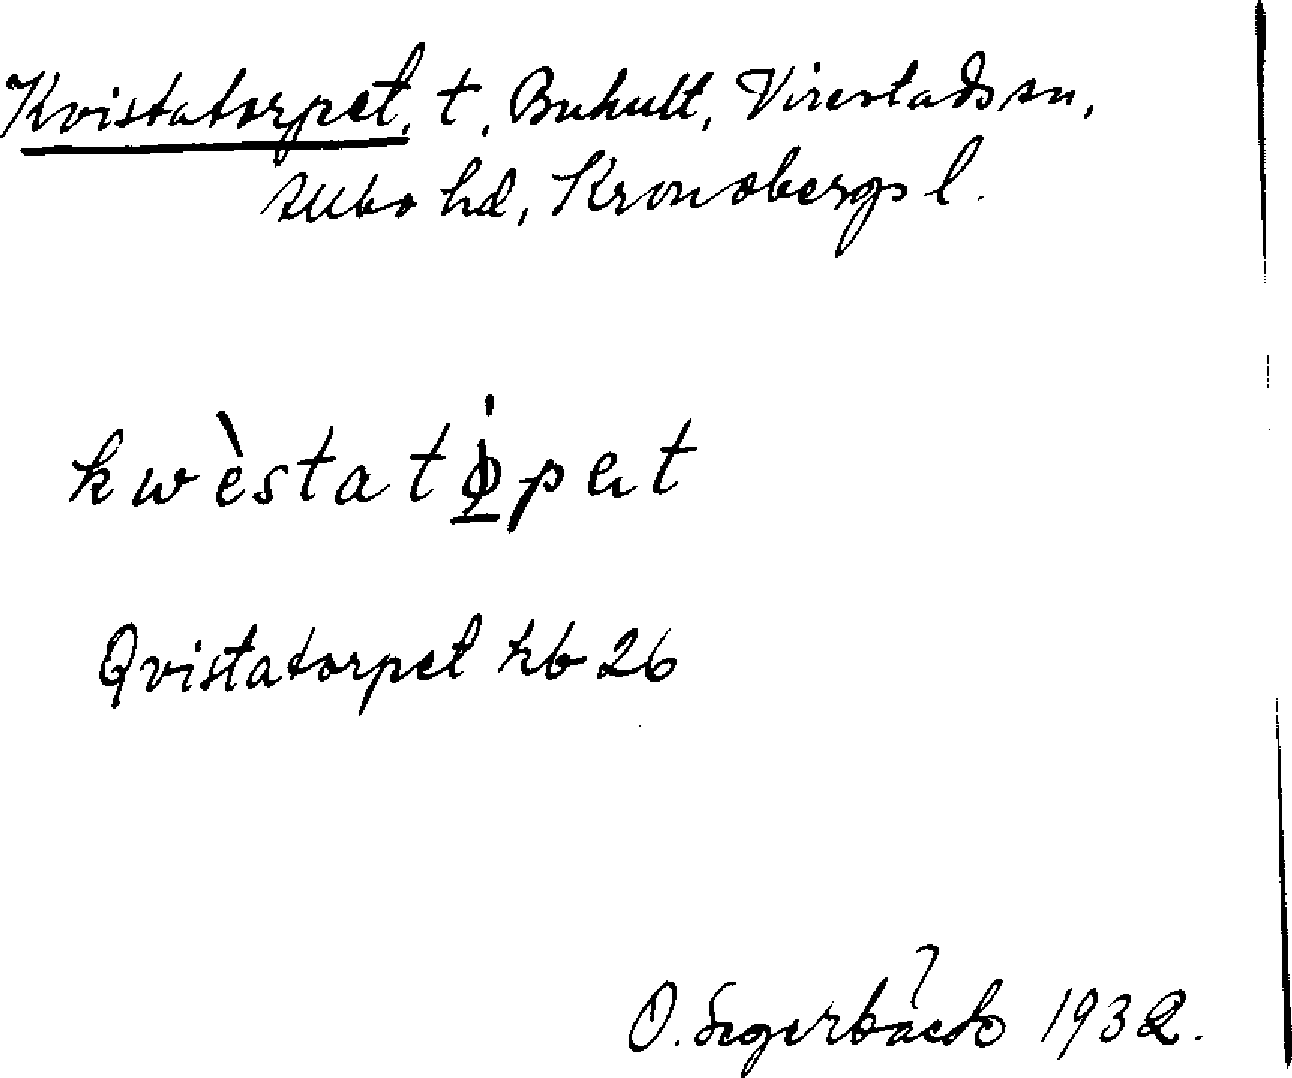 Kvistatorpet, t, Buhult, Virestads sn,
Allbo hd, Kronobergs l.
kwèstatɸ̣pet
Qvistatorpet kb 26
O. Segerbäck 1932.